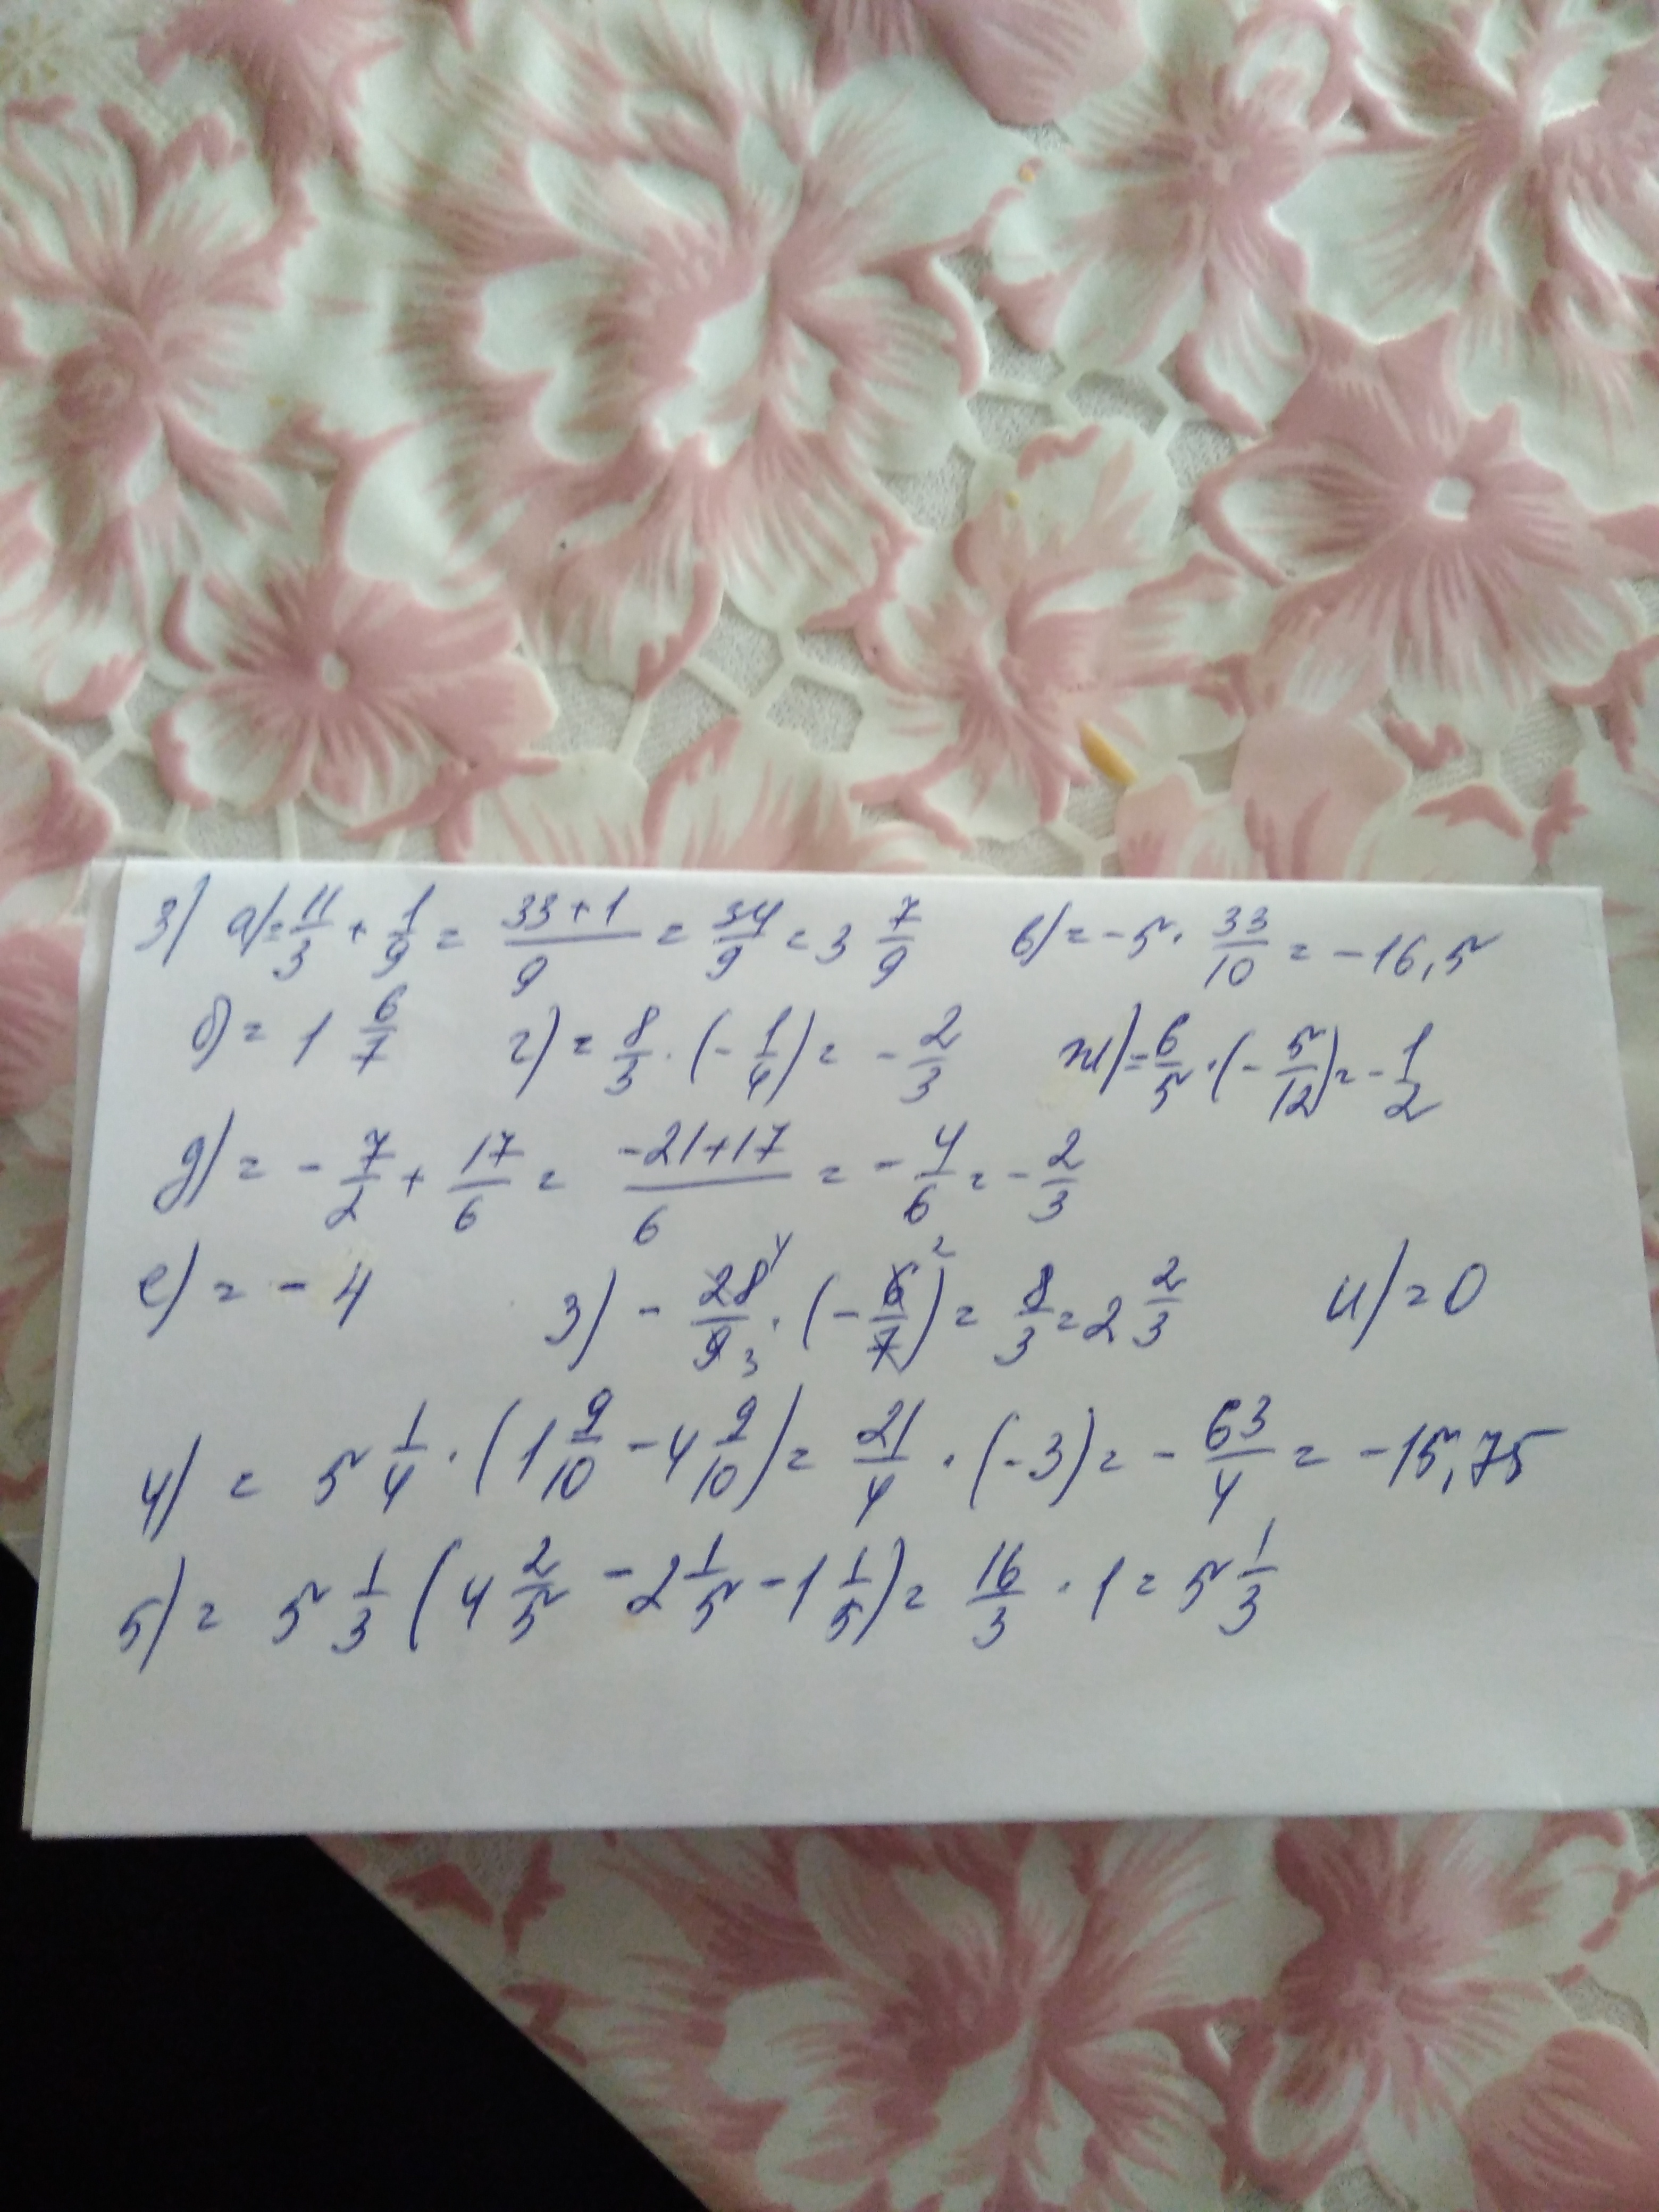 3) а) = 11/3 + 1/9 = (33+1)/9 = 34/9 = 3 7/9 в) = -5 · 33/10 = -16,5
б) = 1 6/7 г) = 8/3 · (-1/4) = -2/3 ж) = 6/5 · (-5/12) = -1/2
д) = -7/2 + 17/6 = (-21+17)/6 = -4/6 = -2/3
е) = -4 з) -28⁴/9₃ · (-6²/7) = 8/3 = 2 2/3 и) = 0
4) = 5 1/4 · (1 9/10 - 4 9/10) = 21/4 · (-3) = -63/4 = -15,75
5) = 5 1/3 (4 2/5 - 2 1/5 - 1 1/5) = 16/3 · 1 = 5 1/3